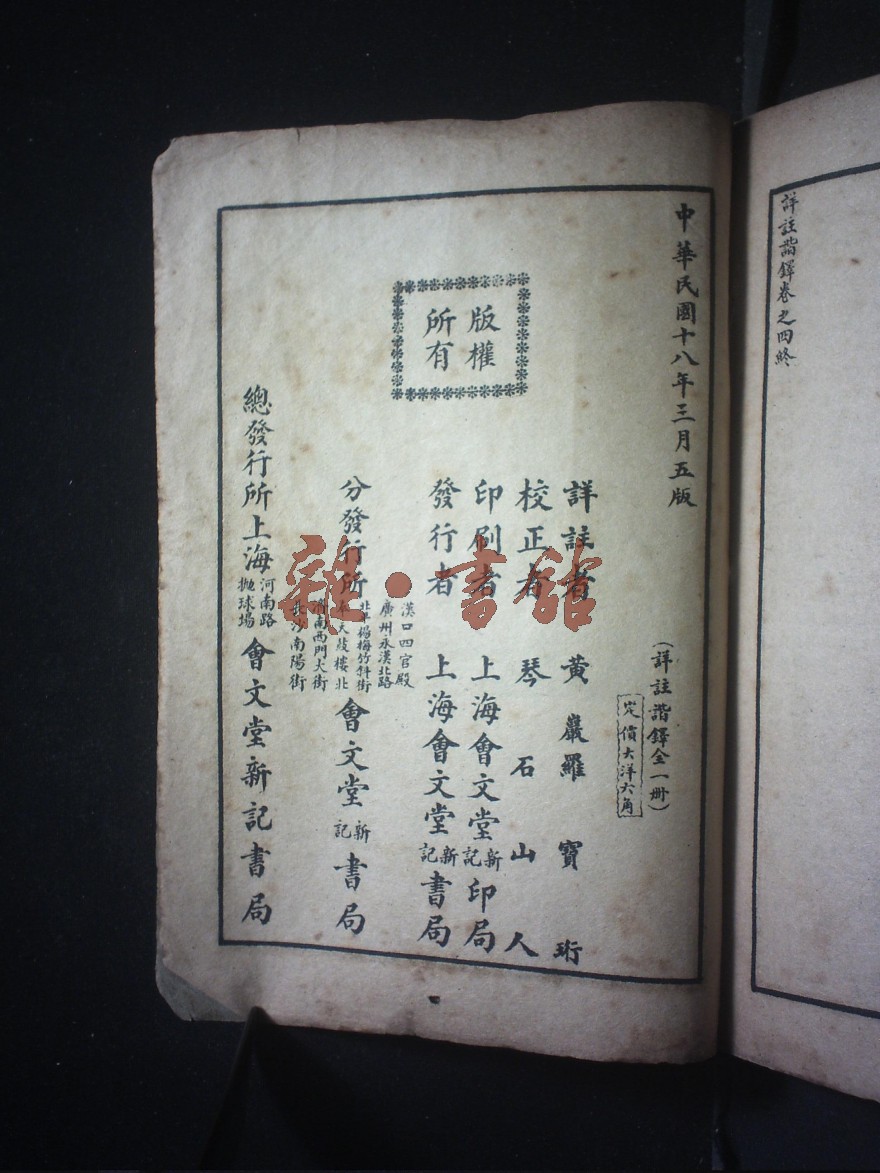 詳註諧鐸卷之四終
中華民國十八年三月五版
(詳註諧鐸全一冊)
定價大洋六角
詳註者 黃巖羅寶珩
校正者 琴石山人
印刷者 上海會文堂新記印局
發行者 上海會文堂新記書局
漢口四官殿
廣州永漢北路
北平楊梅竹斜街
奉天鼓樓北
濟南西門大街
長沙南陽街
分發行所 會文堂新記書局
總發行所上海河南路拋球場會文堂新記書局
版權
所有
雜·書館